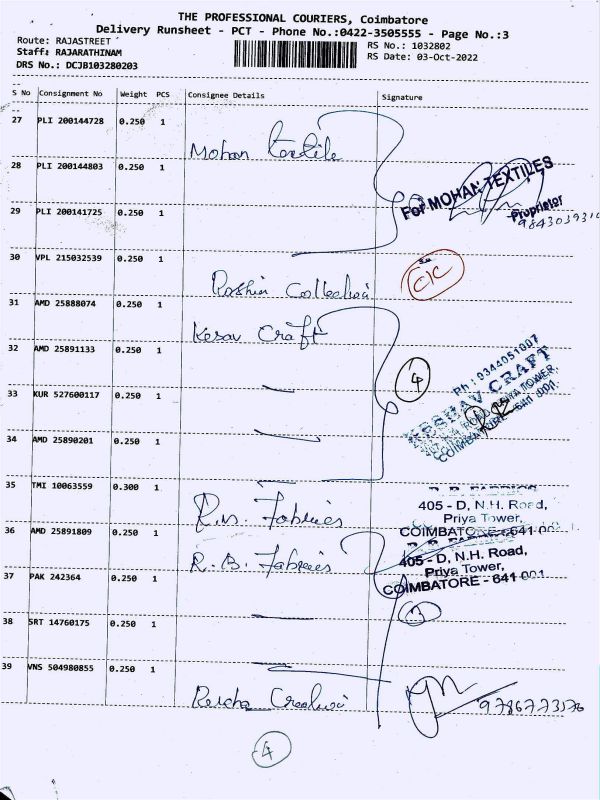 THE PROFESSIONAL COURIERS, Coimbatore
Delivery Runsheet - PCT - Phone No.:0422-3505555 - Page No.:3
Route: RAJASTREET
RS No.: 1032802
Staff: RAJARATHINAM
RS Date: 03-Oct-2022
DRS No.: DCJB103280203
S No Consignment No Weight PCS Consignee Details Signature
27 PLI 200144728 0.250 1
Mohan textile
28 PLI 200144803 0.250 1
For MOHAN TEXTILES
Proprietor
29 PLI 200141725 0.250 1
30 VPL 215032539 0.250 1
C/C
Collection
31 AMD 25888074 0.250 1
Kesav Craft
32 AMD 25891133 0.250 1
4
Ph : 9344051007
KESHAV CRAFT
33 KUR 527600117 0.250 1
COIMBATORE - 641 001.
34 AMD 25890201 0.250 1
35 TMI 10063559 0.300 1
R.B. FABRICS
405 - D, N.H. Road,
Priya Tower,
Fabrics
COIMBATORE - 641 001
36 AMD 25891809 0.250 1
R.B. FABRICS
R. B. Fabrics
405 - D, N.H. Road,
Priya Tower,
COIMBATORE - 641 001
37 PAK 242364 0.250 1
38 SRT 14760175 0.250 1
39 VNS 504980855 0.250 1
9786773576
4